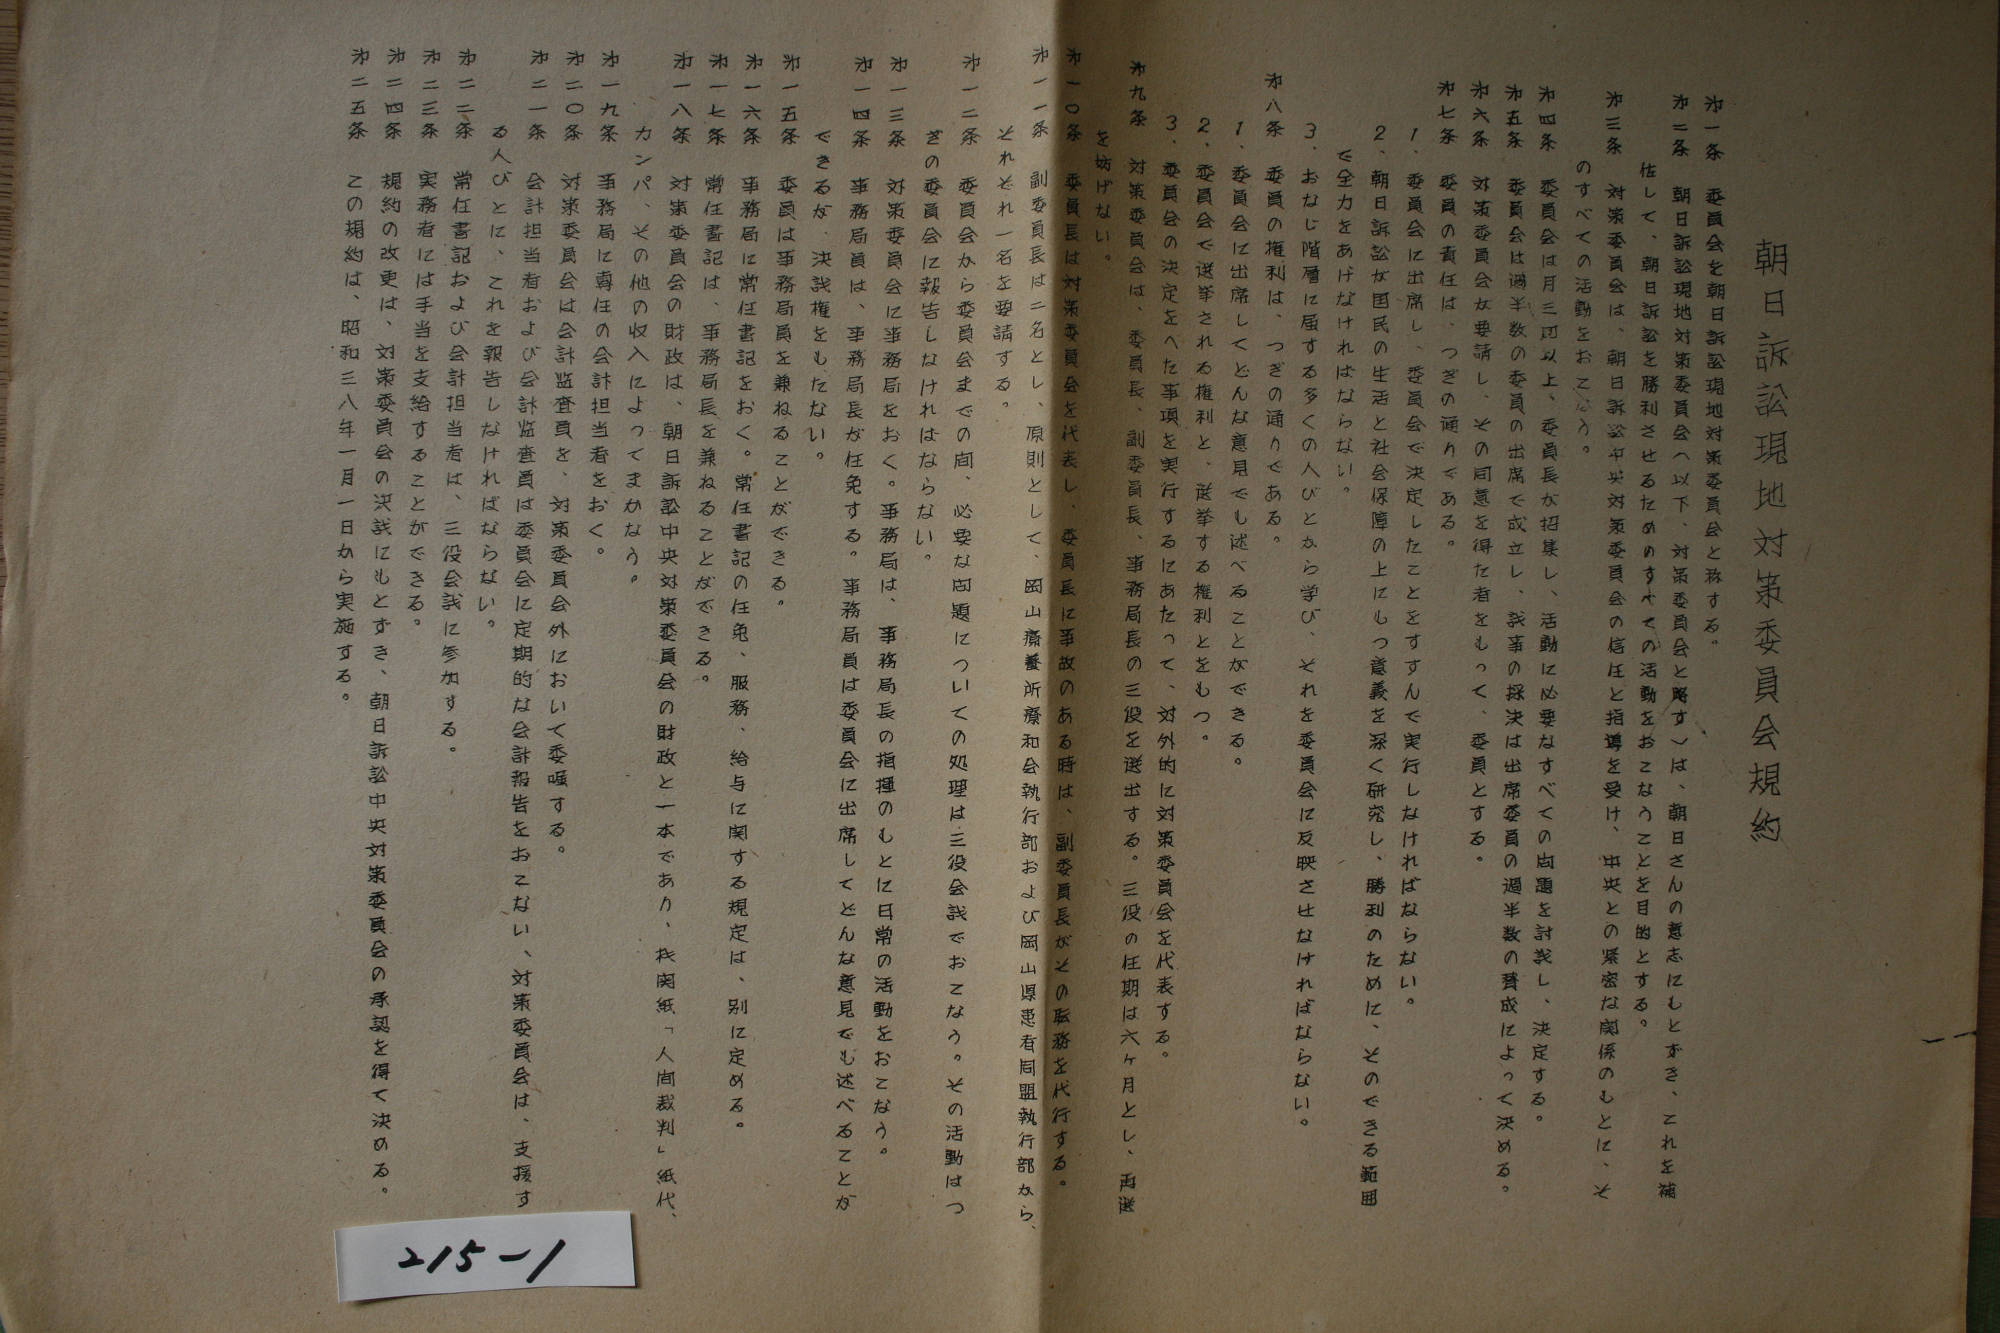 朝日訴訟現地対策委員会規約
第一条　委員会を朝日訴訟現地対策委員会と称する。
第二条　朝日訴訟現地対策委員会（以下、対策委員会と略す）は、朝日さんの意志にもとずき、これを補
佐して、朝日訴訟を勝利させるためのすべての活動をおこなうことを目的とする。
第三条　対策委員会は、朝日訴訟中央対策委員会の信任と指導を受け、中央との緊密な関係のもとに、そ
のすべての活動をおこなう。
第四条　委員会は月三回以上、委員長が招集し、活動に必要なすべての問題を討議し、決定する。
第五条　委員会は過半数の委員の出席で成立し、議事の採決は出席委員の過半数の賛成によって決める。
第六条　対策委員会が要請し、その同意を得た者をもって、委員とする。
第七条　委員の責任は、つぎの通りである。
1、委員会に出席し、委員会で決定したことをすすんで実行しなければならない。
2、朝日訴訟が国民の生活と社会保障の上にもつ意義を深く研究し、勝利のために、そのできる範囲
で全力をあげなければならない。
3、おなじ階層に属する多くの人びとから学び、それを委員会に反映させなければならない。
第八条　委員の権利は、つぎの通りである。
1、委員会に出席してどんな意見でも述べることができる。
2、委員会で選挙される権利と、選挙する権利とをもつ。
3、委員会の決定をへた事項を実行するにあたって、対外的に対策委員会を代表する。
第九条　対策委員会は、委員長、副委員長、事務局長の三役を選出する。三役の任期は六ヶ月とし、再選
を妨げない。
第一〇条　委員長は対策委員会を代表し、委員長に事故のある時は、副委員長がその職務を代行する。
第一一条　副委員長は二名とし、原則として、岡山療養所療和会執行部および岡山県患者同盟執行部から、
それぞれ一名を要請する。
第一二条　委員会から委員会までの間、必要な問題についての処理は三役会議でおこなう。その活動はつ
ぎの委員会に報告しなければならない。
第一三条　対策委員会に事務局をおく。事務局は、事務局長の指揮のもとに日常の活動をおこなう。
第一四条　事務局員は、事務局長が任免する。事務局員は委員会に出席してどんな意見でも述べることが
できるが、決議権をもたない。
第一五条　委員は事務局員を兼ねることができる。
第一六条　事務局に常任書記をおく。常任書記の任免、服務、給与に関する規定は、別に定める。
第一七条　常任書記は、事務局長を兼ねることができる。
第一八条　対策委員会の財政は、朝日訴訟中央対策委員会の財政と一本であり、機関紙「人間裁判」紙代、
カンパ、その他の収入によってまかなう。
第一九条　事務局に専任の会計担当者をおく。
第二〇条　対策委員会は会計監査員を、対策委員会外において委嘱する。
第二一条　会計担当者および会計監査員は委員会に定期的な会計報告をおこない、対策委員会は、支援す
る人びとに、これを報告しなければならない。
第二二条　常任書記および会計担当者は、三役会議に参加する。
第二三条　実務者には手当を支給することができる。
第二四条　規約の改更は、対策委員会の決議にもとずき、朝日訴訟中央対策委員会の承認を得て決める。
第二五条　この規約は、昭和三八年一月一日から実施する。
215-1